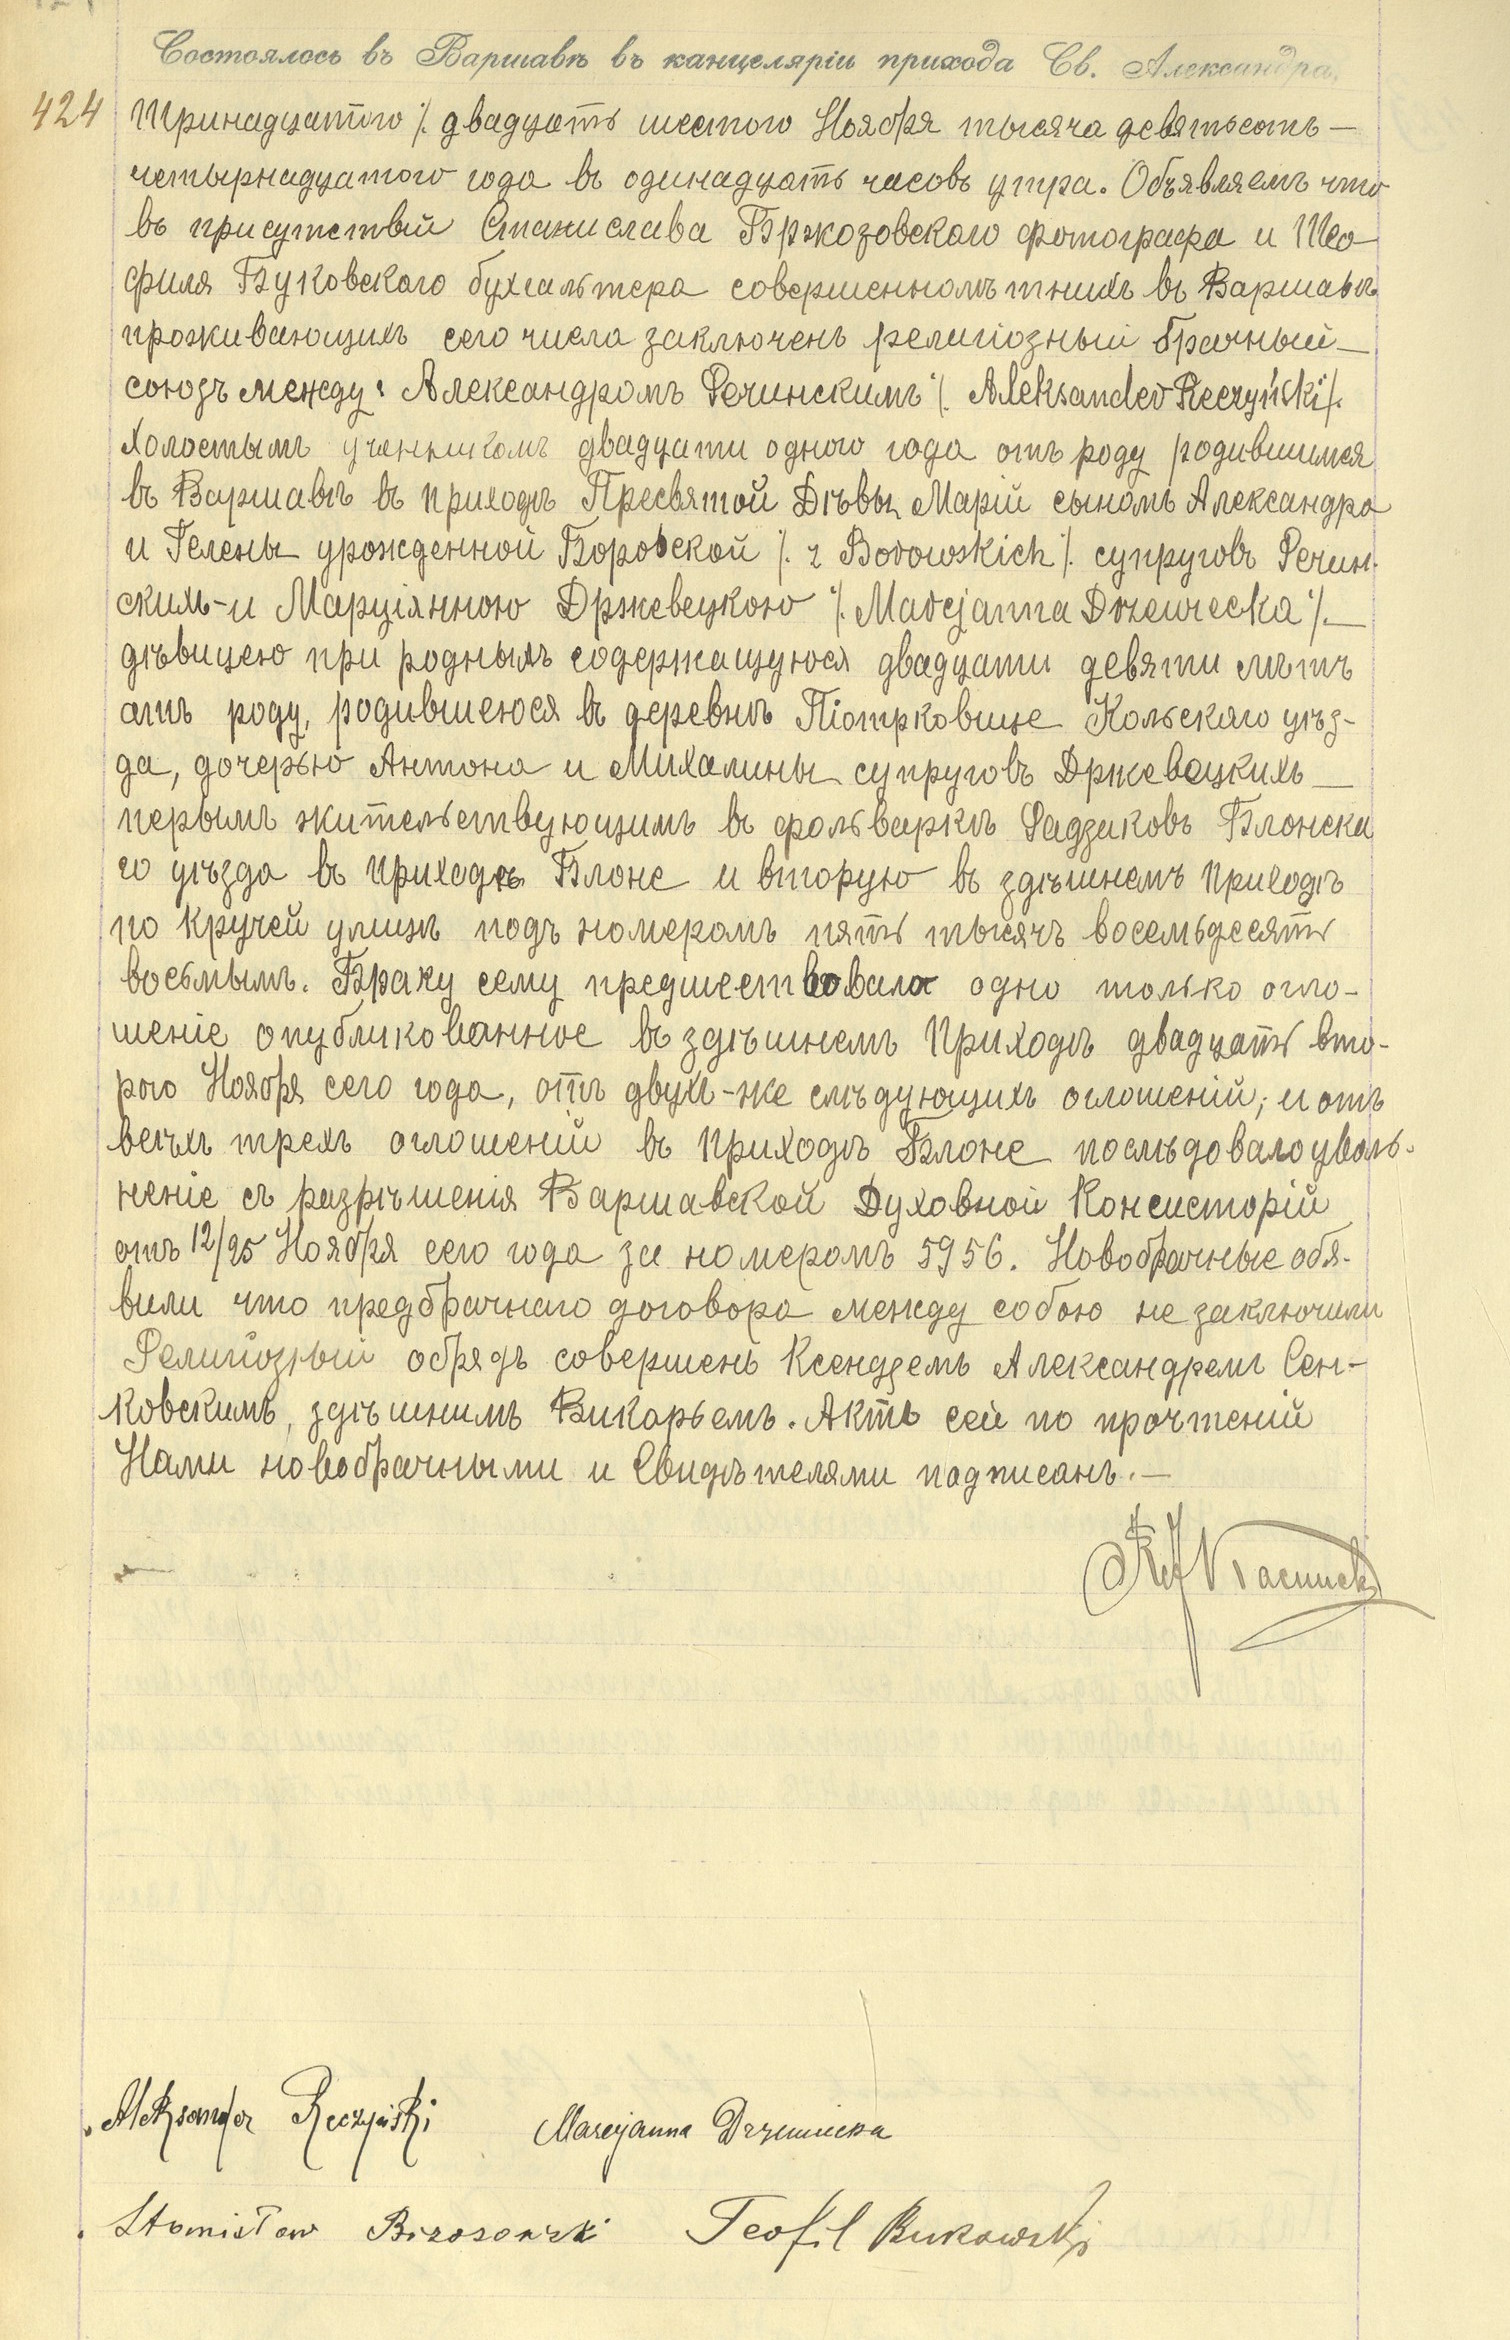 Состоялось въ Варшавѣ въ канцеляріи прихода Св. Александра.
424 Тринадцатого /. двадцать шестого Ноября тысяча девятьсотъ —
четырнадцатого года въ одинадцать часовъ утра. Объявляемъ что
въ присутствій Станислава Бржозовского фотографа и Тео
филя Буковского бухгальтера совершеннолѣтнихъ въ Варшавѣ
проживающихъ сего числа заключенъ религіозный брачный —
союзъ между: Александромъ Речинскимъ /. Aleksander Reczyński /.
холостымъ ученикомъ двадцати одного года отъ роду родившимся
въ Варшавѣ въ приходѣ Пресвятой Дѣвы Марій сыномъ Александра
и Гелены урожденной Боровской /. z Borowskich /. супруговъ Речин-
скихъ - и Марціянною Држевецкою /. Marcjanna Drzewiecka /. —
дѣвицею при родныхъ содержащуюся двадцати девяти лѣтъ
отъ роду, родившеюся въ деревнѣ Піотрковице Кольскаго уѣз-
да, дочерью Антона и Михалины супруговъ Држевецкихъ —
первымъ жительствующимъ въ фольваркѣ Радзиковъ Блонска
го уѣзда въ приходѣ Блоне и вторую въ здѣшнемъ приходѣ
по Кручей улицѣ подъ номеромъ пять тысячъ восемьдесять
восьмымъ. Браку сему предшествовало одно только огло-
шеніе опубликованное въ здѣшнемъ Приходѣ двадцать вто-
рого Ноября сего года, отъ двухъ-же слѣдующихъ оглошеній, и отъ
всѣхъ трехъ оглошеній въ приходѣ Блоне послѣдовало уволь-
неніе съ разрѣшенія Варшавской Духовной Консисторій
отъ 12/25 Ноября сего года за номеромъ 5956. Новобрачные обя-
вили что предбрачнаго договора между собою не заключили
Религіозный обрядъ совершенъ Ксендземъ Александремъ Сен-
ковскимъ, здѣшнимъ Викарьемъ. Актъ сей по прочтеній
Нами новобрачными и Свидѣтелями подписанъ. —
Aleksander Reczyński Marcjanna Drzewiecka
Stanisław Brzozowski Teofil Bukowski